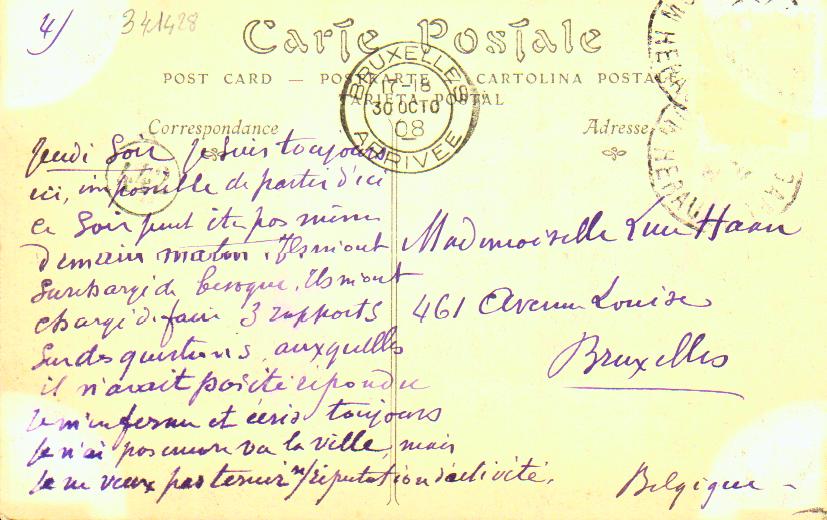 4)
341428
Carte Postale
POST CARD — POSTKARTE — CARTOLINA POSTALE
TARJETA POSTAL
BRUXELLES
17-18
30 OCTO
08
ARRIVEE
Correspondance
Adresse
Jeudi Soir je suis toujours
ici, impossible de partir d'ici
ce Soir peut être pas même
demain matin. Ils m'ont
surchargé de besogne. Ils m'ont
chargé de faire 3 rapports
sur des questions auxquelles
il n'avait pas été répondu
Je m'enferme et écris toujours
Je n'ai pas encore vu la ville, mais
Je ne veux pas ternir m/réputation d'activité.
Mademoiselle Haan
461 Avenue Louise
Bruxelles
Belgique